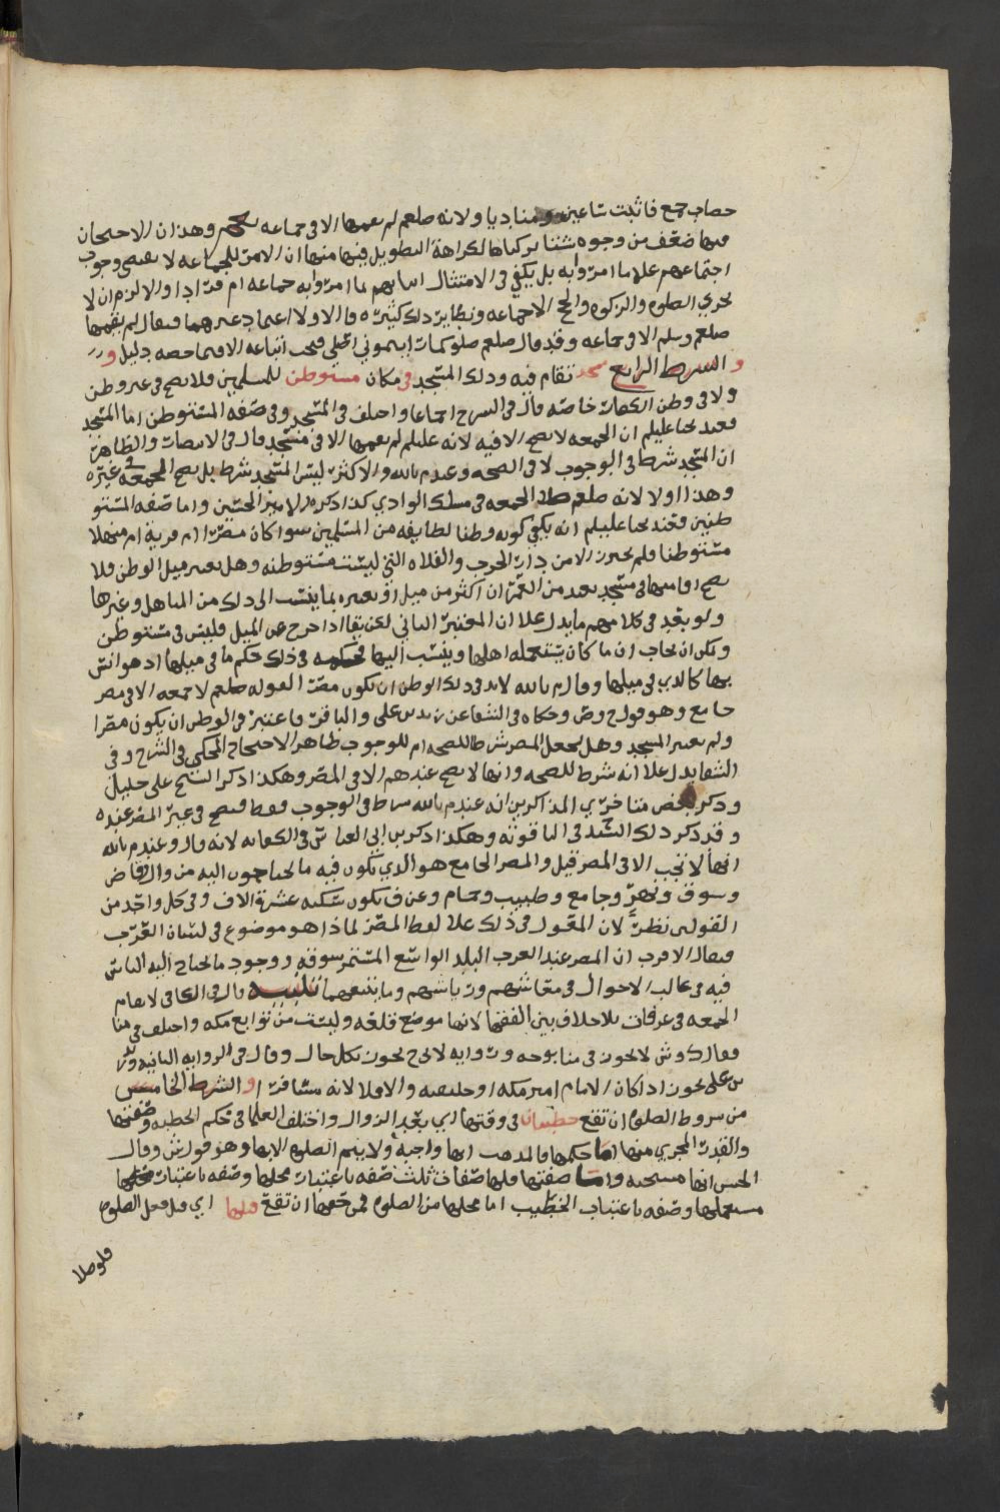 خصاب جمع فاثبت ساعين ومناديا ولانه صلعم لم يقمها الا في جماعه وهذان الاحتجان
فيهما ضعف من وجوه شتا تركناها لكراهة التطويل فيها منها ان الامر للجماعه لا يقتضي وجوب
اجتماعهم علا ما امروا به بل يكفي في الامتثال اتيانهم لما امروا به جماعه ام فرادا والا لزم ان لا
تجزي الصلوه والزكوه والحج الا جماعه ونظاير ذلك كثيره فالاولا اعتماد غيرهما فيقال لم يقمها
صلعم وسلم الا في جماعه وقد قال صلعم صلو كمارايتموني اصلي فيجب اتباعه الا فيما خصه دليل و
والشرط الرابع مسجد تقام فيه وذلك المسجد في مكان مستوطن للمسلمين فلا يصح في غير وطن
ولا في وطن الكفار خاصه قال في الشرح اجماعا واختلف في المسجد وفي صفه المستوطن اما المسجد
فعند نحا عليلم ان الجمعه لا تصح الا فيه لانه عليلم لم يقمها الا في مسجد قال في الانتصار والظاهر
ان المسجد شرط في الوجوب لا في الصحه وعند م بالله والاكثر ليس المسجد شرط بل تصح الجمعه في غيره
وهذا اولا لانه صلعم صلا الجمعه في مسلك الوادي كذا ذكره الامير الحسين واما صفه المستو
طنين فعند نحا عليلم انه يكفي كونه وطنا لطايفه من المسلمين سوا كان مصرا ام قريه ام منهلا
مستوطنا فلم تحترز الا من دار الحرب والفلاه التي ليست مستوطنه وهل يعتبر ميل الوطن فلا
تصح اقامتها في مسجد بعد من العمران اكثر من ميل او يعتبره بما ينتسب الى ذلك من المناهل وغيرها
ولو بعد في كلامهم ما يدل علا ان المعتبر الثاني لكن يقال اذا خرج عن الميل فليس في مستوطن
ويمكن ان يجاب ان ما كان يستعمله اهلها وينسب اليها فحكمه في ذلك حكم ما في ميلها اذ هو انس
بها كالذي في ميلها وقال م بالله لا بد في ذلك الوطن ان يكون مصرا لقوله صلعم لا جمعه الا في مصر
جامع وهو قول ح وص وحكاه في الشفا عن زيد بن علي والباقر فاعتبر في الوطن ان يكون مصرا
ولم يعتبر المسجد وهل يجعل المصر شرطا للصحه ام للوجوب ظاهر الاحتجاج المحكي في الشرح وفي
الشفا يدل علا انه شرط للصحه وانها لا تصح عندهم الا في المصر وهكذا ذكر الشيخ علي خليل
وذكر بعض متاخري المذاكرين انه عند م بالله شرط في الوجوب فقط فتصح في غير المصر عنده
وقد ذكر ذلك السيد في الياقوته وهكذا ذكر بن ابي العباس في الكفايه لانه قال وعند م بالله
انها لا تجب الا في المصر قيل والمصر الجامع هو الذي يكون فيه ما يحتاجون اليه من وال وقاض
وسوق ونهر وجامع وطبيب وحمام وعن ف يكون سكنه عشرة الاف وفي كل واحد من
القولين نظر لان المعول في ذلك علا لفظ المصر لما ذا هو موضوع في لسان العرب
فيقال الاقرب ان المصر عند العرب البلد الواسع المستمر سوقه ووجود ما يحتاج اليه الناس
فيه في غالب الاحوال في معاشهم ورياشهم وما ينفعهم تنبيه قال في الكافي لا تقام
الجمعه في عرفات بلا خلاف بين الفقها لانها موضع قلعه وليست من توابع مكه واختلف في منا
فقال ك وش لا تجوز في منا بوجه وروايه لا لح تجوز بكل حال وقال في الروايه الثانيه وزيد
بن علي تجوز اذا كان الامام امير مكه او خليفه والا فلا لانه مسافر او والشرط الخامس
من شروط الصلوه ان تقع خطبتان في وقتها اي بعد الزوال واختلف العلما في حكم الخطبه وصفتها
والقدر المجزي منها اما حكمها فالمذهب انها واجبه ولا يتم الصلوه الا بها وهو قول ش وقال
الحسن انها مستحبه واما صفتها فلها صفات ثلث صفه باعتبار محلها وصفه باعتبار
مستعملها وصفه باعتبار الخطيب اما محلها من الصلوه فمن حقها ان تقع قبلها اي قبل فعل الصلوه
فلو صلا